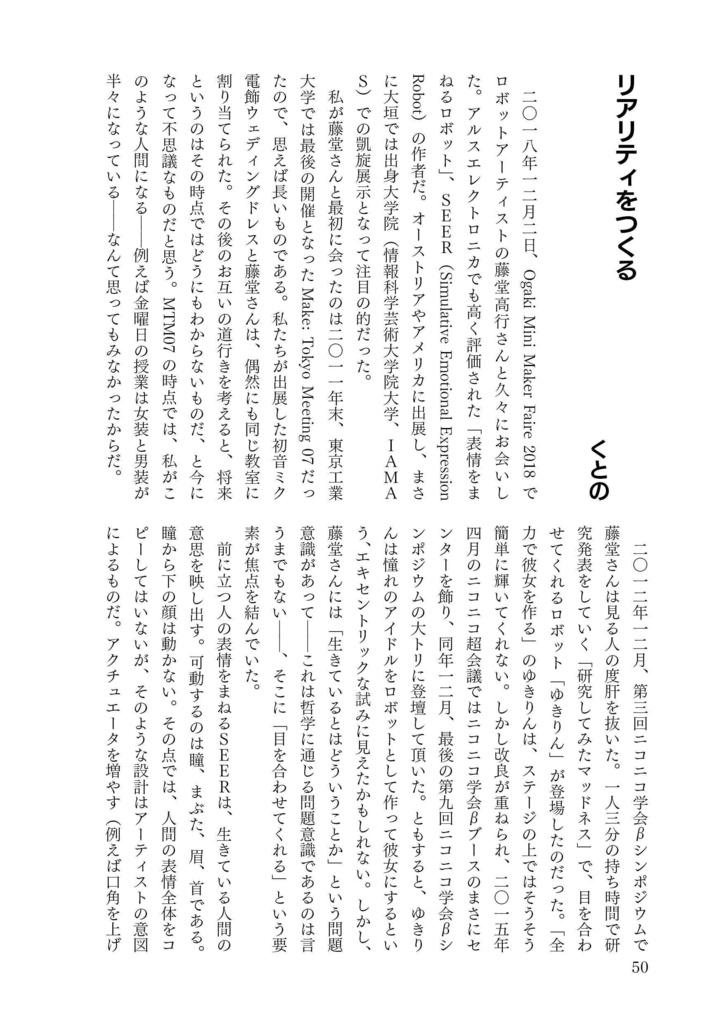 リアリティをつくる
くとの
二〇一八年一二月二日、Ogaki Mini Maker Faire 2018 で
ロボットアーティストの藤堂高行さんと久々にお会いし
た。アルスエレクトロニカでも高く評価された「表情をま
ねるロボット」、ＳＥＥＲ（Simulative Emotional Expression
Robot）の作者だ。オーストリアやアメリカに出展し、まさ
に大垣では出身大学院（情報科学芸術大学院大学、ＩＡＭＡ
Ｓ）での凱旋展示となって注目の的だった。
私が藤堂さんと最初に会ったのは二〇一一年末、東京工業
大学では最後の開催となった Make: Tokyo Meeting 07 だっ
たので、思えば長いものである。私たちが出展した初音ミク
電飾ウェディングドレスと藤堂さんは、偶然にも同じ教室に
割り当てられた。その後のお互いの道行きを考えると、将来
というのはその時点ではどうにもわからないものだ、と今に
なって不思議なものだと思う。MTM07 の時点では、私がこ
のような人間になる――例えば金曜日の授業は女装と男装が
半々になっている――なんて思ってもみなかったからだ。
二〇一二年一二月、第三回ニコニコ学会βシンポジウムで
藤堂さんは見る人の度肝を抜いた。一人三分の持ち時間で研
究発表をしていく「研究してみたマッドネス」で、目を合わ
せてくれるロボット「ゆきりん」が登場したのだった。「全
力で彼女を作る」のゆきりんは、ステージの上ではそうそう
簡単に輝いてくれない。しかし改良が重ねられ、二〇一五年
四月のニコニコ超会議ではニコニコ学会βブースのまさにセ
ンターを飾り、同年一二月、最後の第九回ニコニコ学会βシ
ンポジウムの大トリに登壇して頂いた。ともすると、ゆきり
んは憧れのアイドルをロボットとして作って彼女にするとい
う、エキセントリックな試みに見えたかもしれない。しかし、
藤堂さんには「生きているとはどういうことか」という問題
意識があって――これは哲学に通じる問題意識であるのは言
うまでもない――、そこに「目を合わせてくれる」という要
素が焦点を結んでいた。
前に立つ人の表情をまねるＳＥＥＲは、生きている人間の
意思を映し出す。可動するのは瞳、まぶた、眉、首である。
瞳から下の顔は動かない。その点では、人間の表情全体をコ
ピーしてはいないが、そのような設計はアーティストの意図
によるものだ。アクチュエータを増やす（例えば口角を上げ
50